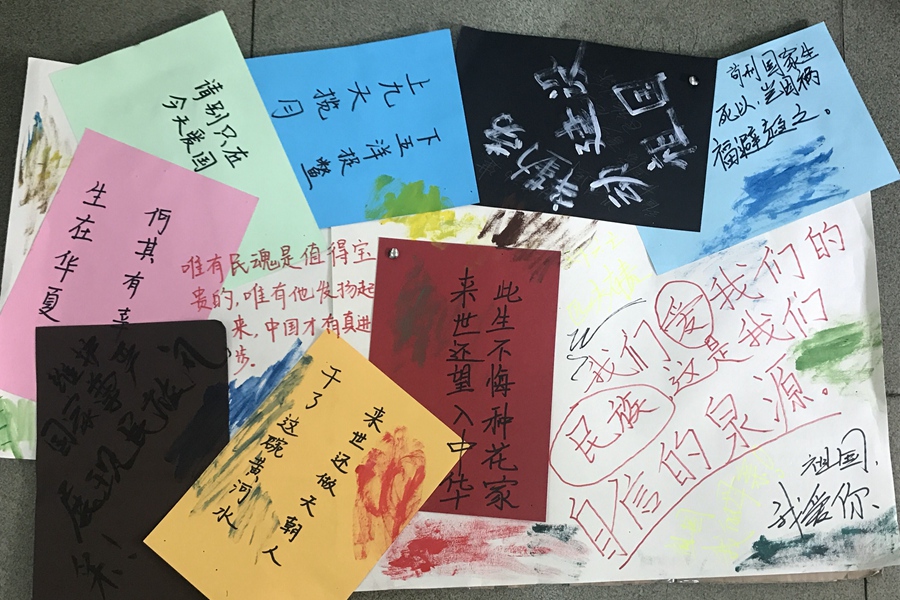 请别只在
今天爱国
上九天揽月
下五洋捉鳖
苟利国家生
死以,岂因祸
福避趋之。
何其有幸
生在华夏
唯有民魂是值得宝
贵的,唯有他发扬起
来,中国才有真进
步。
此生不悔种花家
来世还望入中华
我们爱我们的
民族 这是我们
自信的泉源。
干了这碗黄河水
来世还做天朝人
维护
国家
展现民族风
采!
祖国,
我爱你.